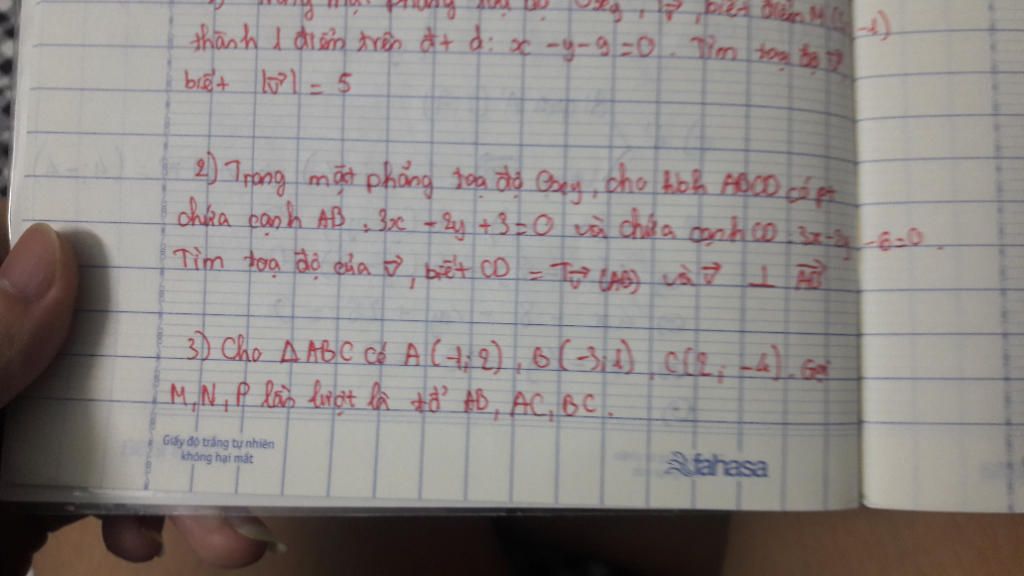 phẳng toạ độ Oxy, v⃗, biết điểm M(
-1)
thành 1 điểm trên đt d: x - y - 9 = 0. Tìm toạ độ v⃗
biết |v⃗| = 5
2) Trong mặt phẳng toạ độ Oxy, cho hbh ABCD có pt
chứa cạnh AB: 3x - 2y + 3 = 0 và chứa cạnh CD 3x - 2y - 6 = 0.
Tìm toạ độ của v⃗, biết CD = Tv⃗ (AB) và v⃗ ⊥ AB⃗
3) Cho △ABC có A(-1; 2), B(-3; 1), C(2; -4). Gọi
M, N, P lần lượt là tđ AB, AC, BC.
Giấy độ trắng tự nhiên
không hại mắt
fahasa